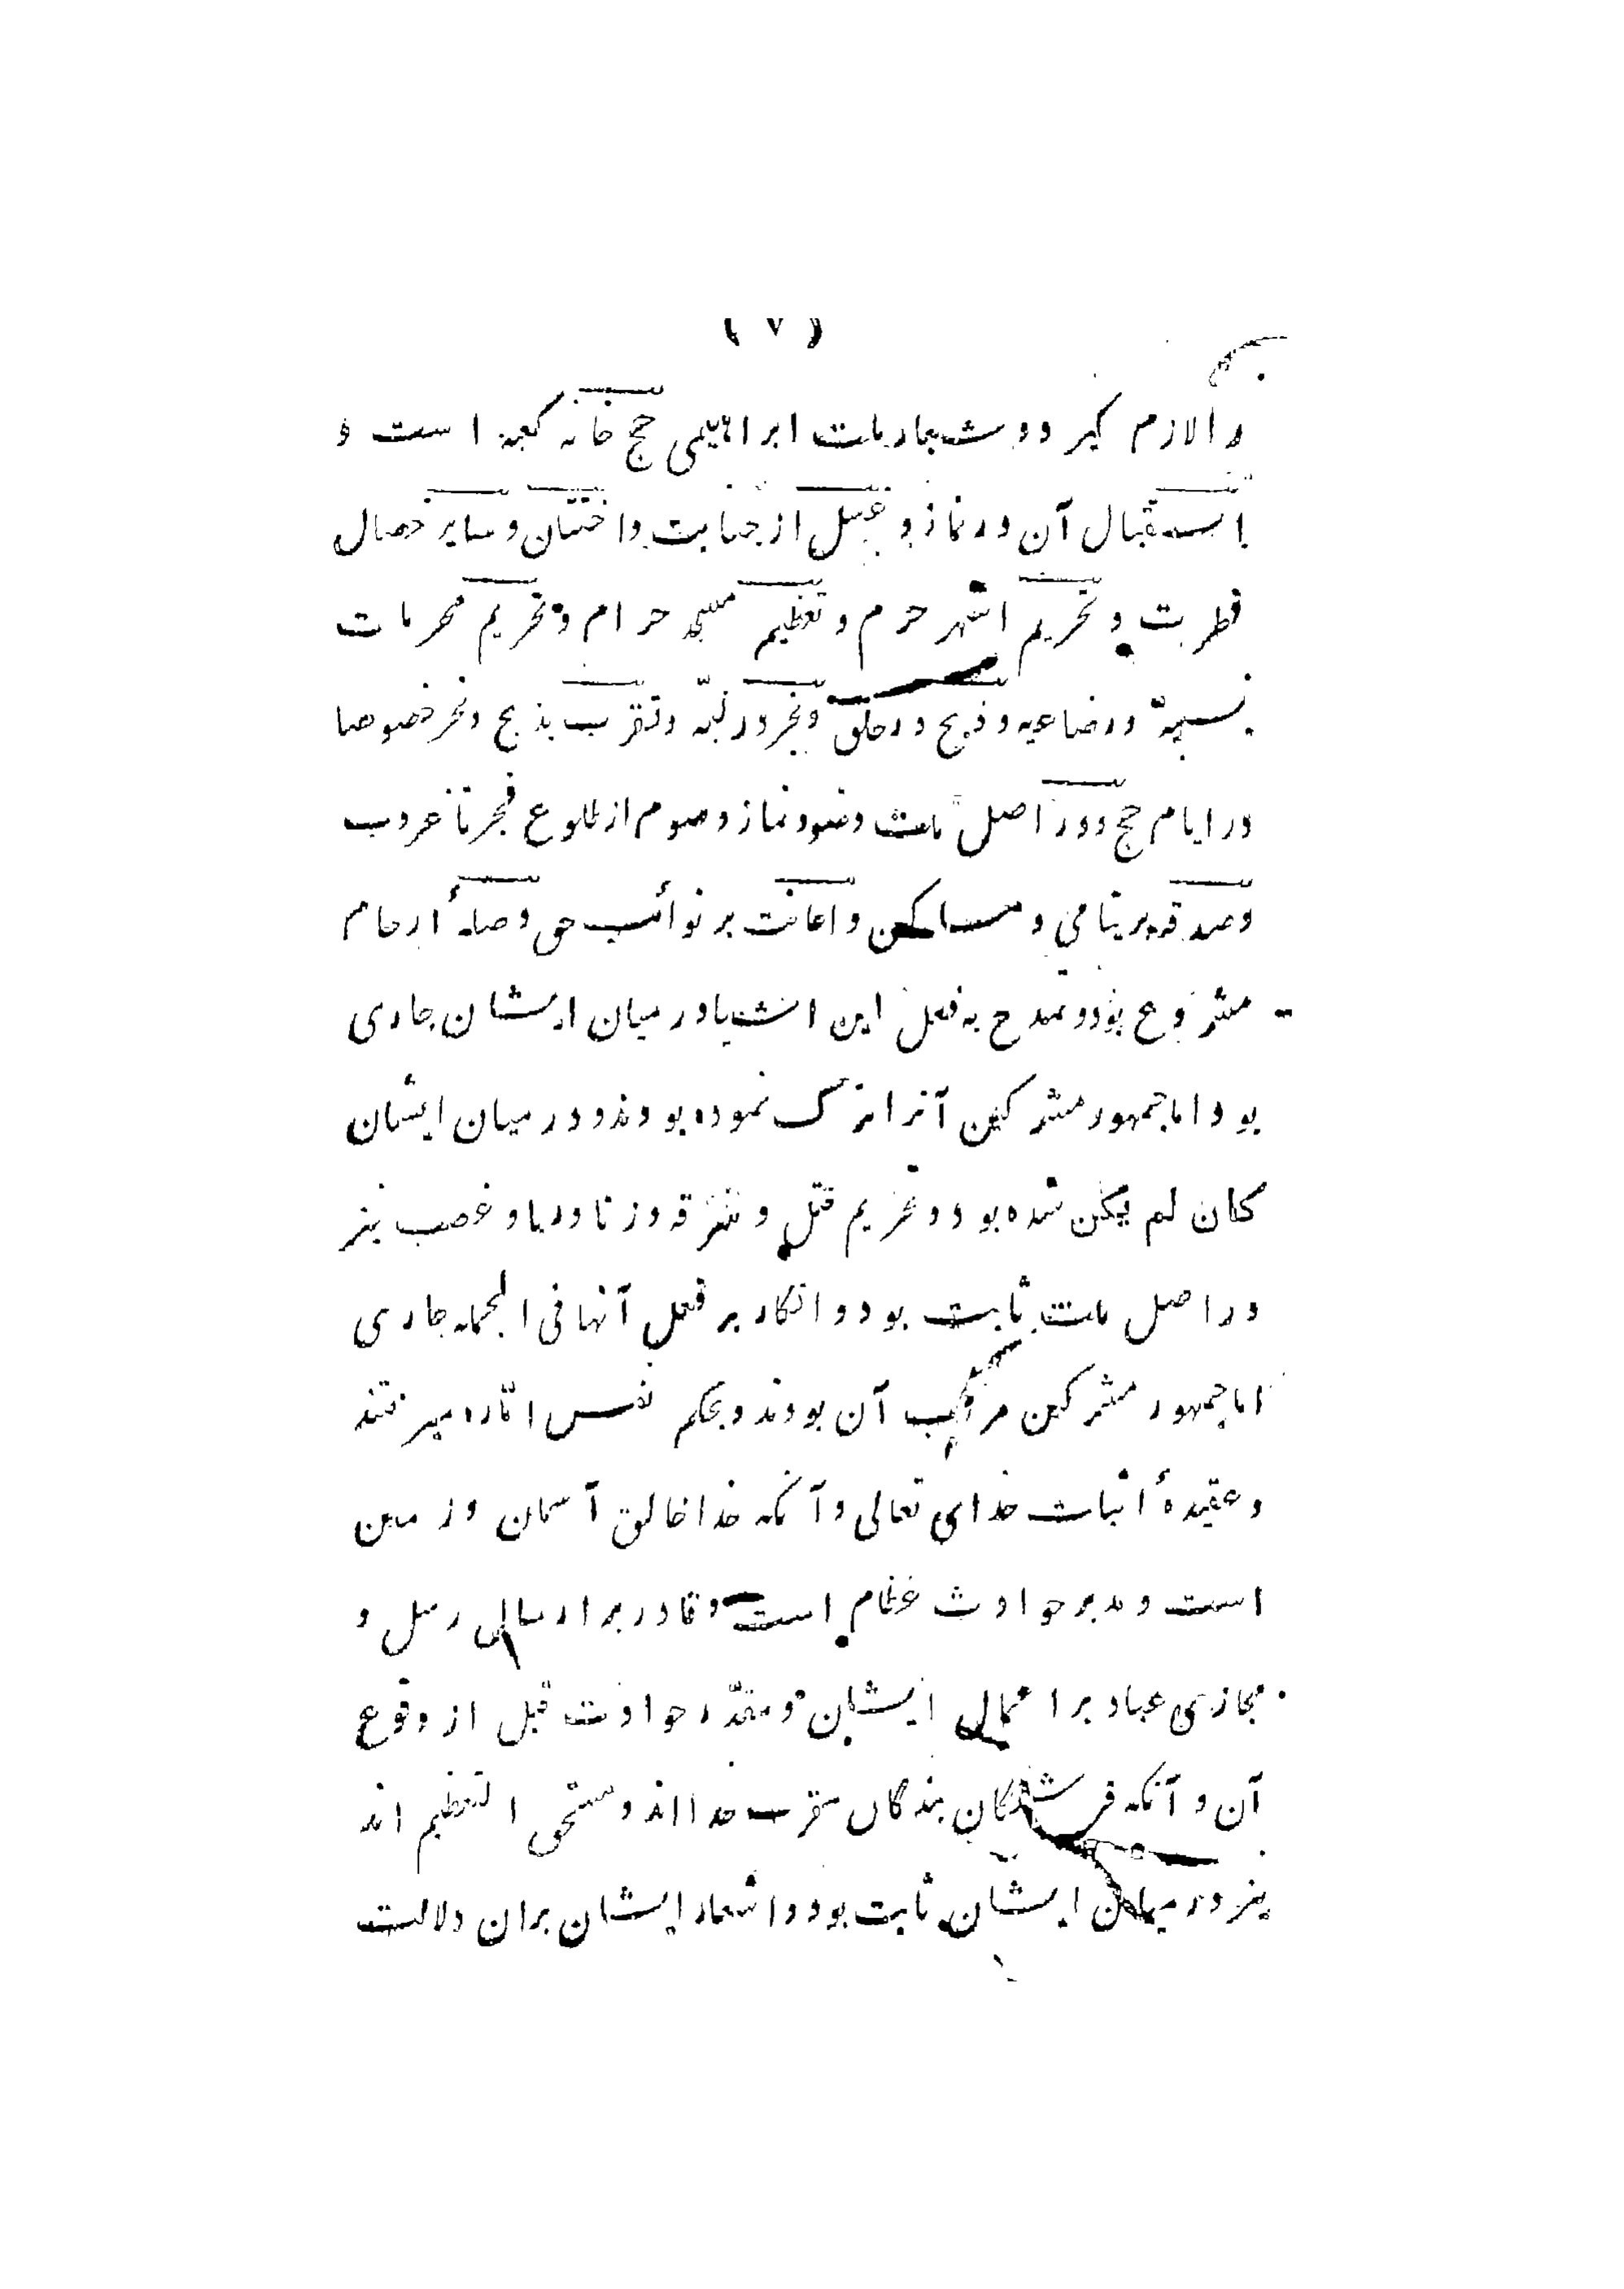 ( ٧ )
را لازم گیرد و شعار ملت ابراهیمی حج خانه کعبه است و
استقبال آن در نماز و غسل از جنابت و اختتان و سایر خصال
فطرت و تحریم اشهر حرم و تعظیم مسجد حرام و تحریم محرمات
نسبیه و رضاعیه و ذبح در حلق و نحر در لبه و تقرب بذبح و نحر خصوصا
در ایام حج و در اصل ملت وضو و نماز و صوم از طلوع فجر تا غروب
و صدقه بر یتامی و مساکین و اعانت بر نوائب حق و صلهٔ ارحام
مشروع بود و تمدح به فعل این اشیا در میان ایشان جاری
بود اما جمهور مشرکین آنرا ترک نموده بودند و در میان ایشان
کان لم یکن شده بود و تحریم قتل و سرقه و زنا و ربا و غصب نیز
در اصل ملت ثابت بود و انکار بر فعل آنها فی الجمله جاری
اما جمهور مشرکین مرتکب آن بودند و بحکم نفس امّاره میرفتند
و عقیدهٔ اثبات خدای تعالی و آنکه خدا خالق آسمان و زمین
است و مدبر حوادث عظام است و قادر بر ارسال رسل و
مجازی عباد بر اعمال ایشان و مقدّر حوادث قبل از وقوع
آن و آنکه فرشتگان بندگان مقرب خدا اند و مستحق التعظیم اند
نیز در میان ایشان ثابت بود و اشعار ایشان بران دلالت